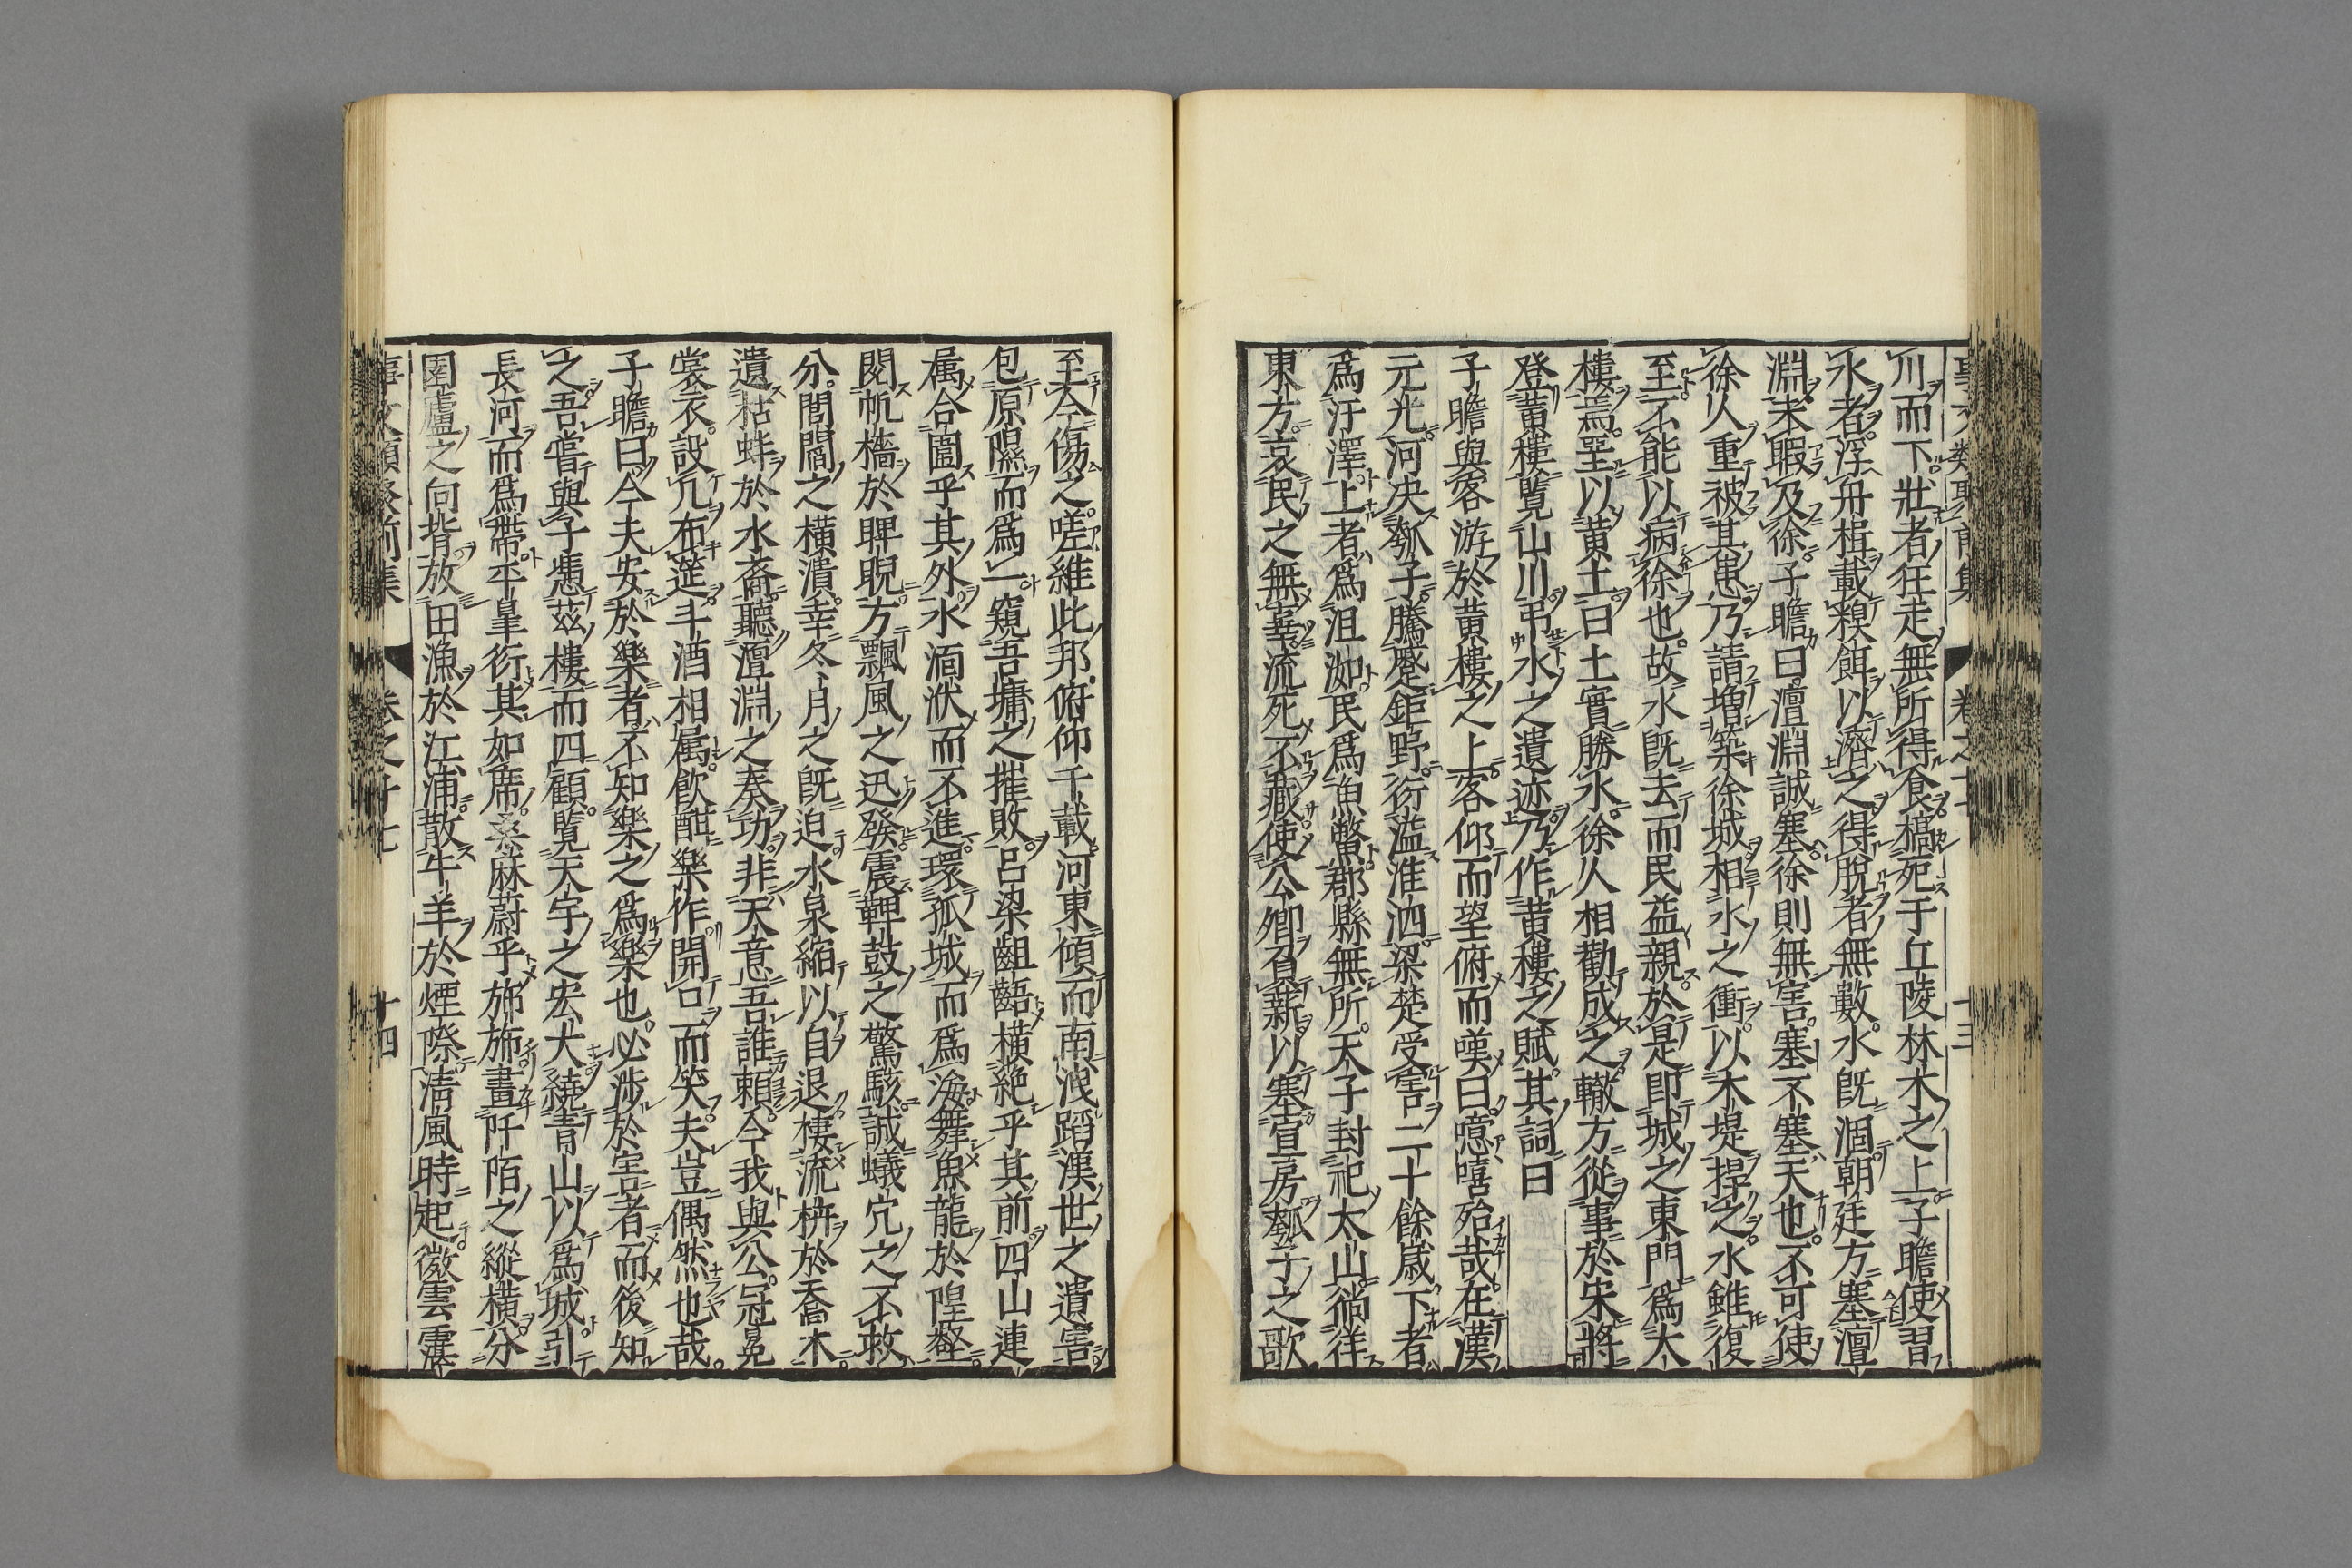 川而下壯者狂走無所得食槁死于丘陵林木之上子瞻使習
水者浮舟楫載糗餌以濟之得脫者無數水既涸朝廷方塞澶
淵未暇及徐子瞻曰澶淵誠塞徐則無害塞不塞天也不可使
徐人重被其患乃請增築徐城相水之衝以木堤捍之水雖復
至不能以病徐也故水既去而民益親於是即城之東門爲大
樓焉堊以黃土曰土實勝水徐人相勸成之轍方從事於宋將
登黃樓覽山川弔水之遺迹乃作黃樓之賦其詞曰
子瞻與客游於黃樓之上客仰而望俯而嘆曰噫嘻殆哉在漢
元光河决瓠子騰蹙鉅野衍溢淮泗梁楚受害二十餘歲下者
爲汙澤上者爲沮洳民爲魚鱉郡縣無所天子封祀太山徜徉
東方哀民之無辜流死不藏使公卿負薪以塞宣房瓠子之歌
至今傷之嗟維此邦俯仰千載河東傾而南洩蹈漢世之遺害
包原隰而爲一窺吾墉之摧敗呂梁齟齬橫絶乎其前四山連
属合圍乎其外水洄洑而不進環孤城而爲海舞魚龍於隍壑
閱帆檣於睥睨方飄風之迅發震鞞鼓之驚駭誠蟻穴之不救
分閭閻之橫潰幸冬月之既迫水泉縮以自退棲流枿於喬木
遺枯蚌於水裔聽澶淵之奏功非天意吾誰頼今我與公冠冕
裳衣設几布筵斗酒相属飮酣樂作開口而笑夫豈偶然也哉
子瞻曰今夫安於樂者不知樂之爲樂也必渉於害者而後知
之吾嘗與子憑茲樓而四顧覽天宇之宏大繞青山以爲城引
長河而爲帶平皐衍其如席桑麻蔚乎斾斾畫阡陌之縱橫分
園廬之向背放田漁於江浦散牛羊於煙際清風時起微雲霮
卷之十七
十四